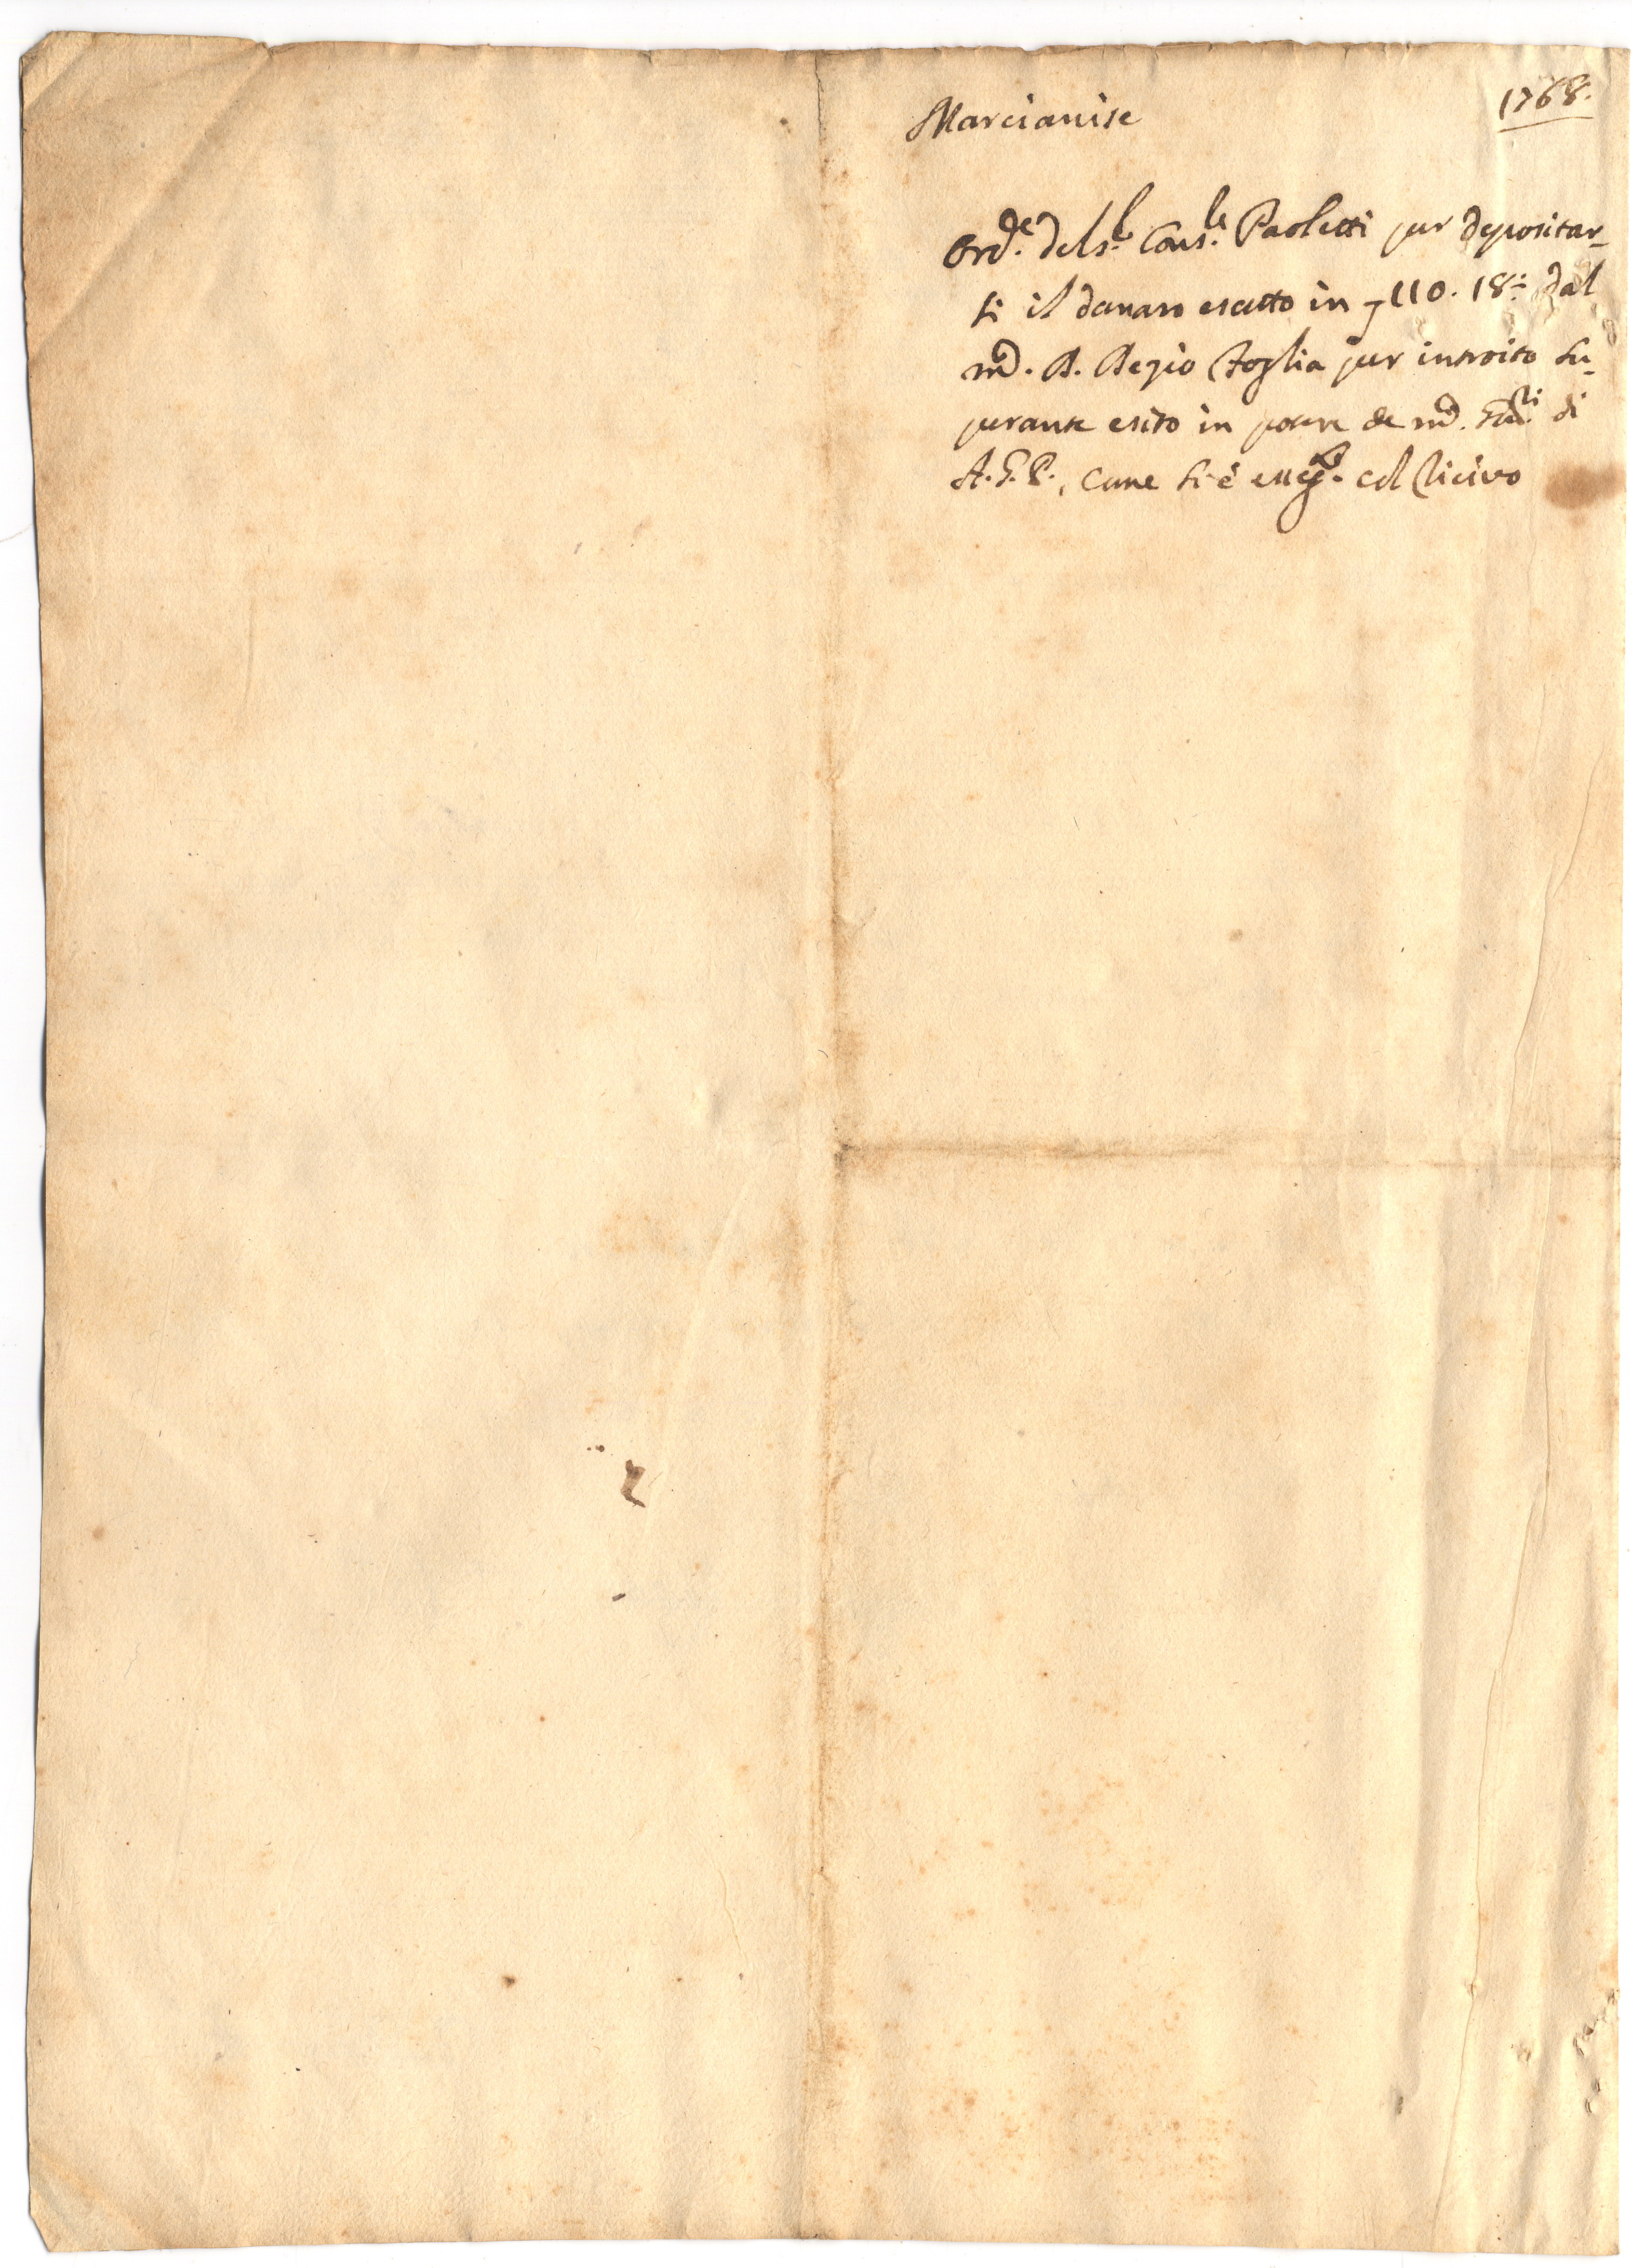 Marcianise
1768.
Ord.de del S.r Cons.le Paoletti per depositar-
si il danaro esatto in 110. 18: dal
m.co D. Foglia per introito su-
perante esito in potere de m.ci di
A. G. P., come si è col ricivo